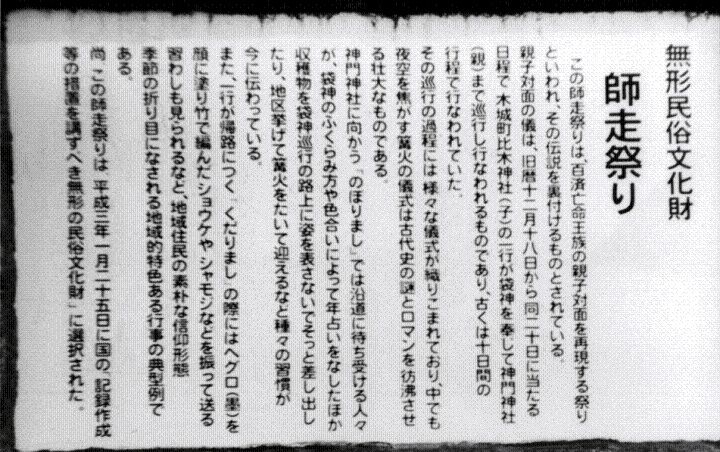 無形民俗文化財
師走祭り
この師走祭りは、百済亡命王族の親子対面を再現する祭り
といわれ、その伝説を裏付けるものとされている。
親子対面の儀は、旧暦十二月十八日から同二十日に当たる
日程で木城町比木神社（子）の一行が袋神を奉して神門神社
（親）まで巡行し行なわれるものであり、古くは十日間の
行程で行なわれていた。
その巡行の過程には様々な儀式が織りこまれており、中でも
夜空を焦がす篝火の儀式は古代史の謎とロマンを彷沸させ
る壮大なものである。
神門神社に向かう「のぼりまし」では沿道に待ち受ける人々
が、袋神のふくらみ方や色合いによって年占いをなしたほか
収穫物を袋神巡行の路上に姿を表さないでそっと差し出し
たり、地区挙げて篝火をたいて迎えるなど種々の習慣が
今に伝わっている。
また、一行が帰路につく「くだりまし」の際にはヘグロ（墨）を
顔に塗り竹で編んだショウケやシャモジなどを振って送る
習わしも見られるなど、地域住民の素朴な信仰形態
季節の折り目になされる地域的特色ある行事の典型例で
ある。
尚 この師走祭りは 平成三年一月二十五日に国の「記録作成
等の措置を講ずべき無形の民俗文化財」に選択された。